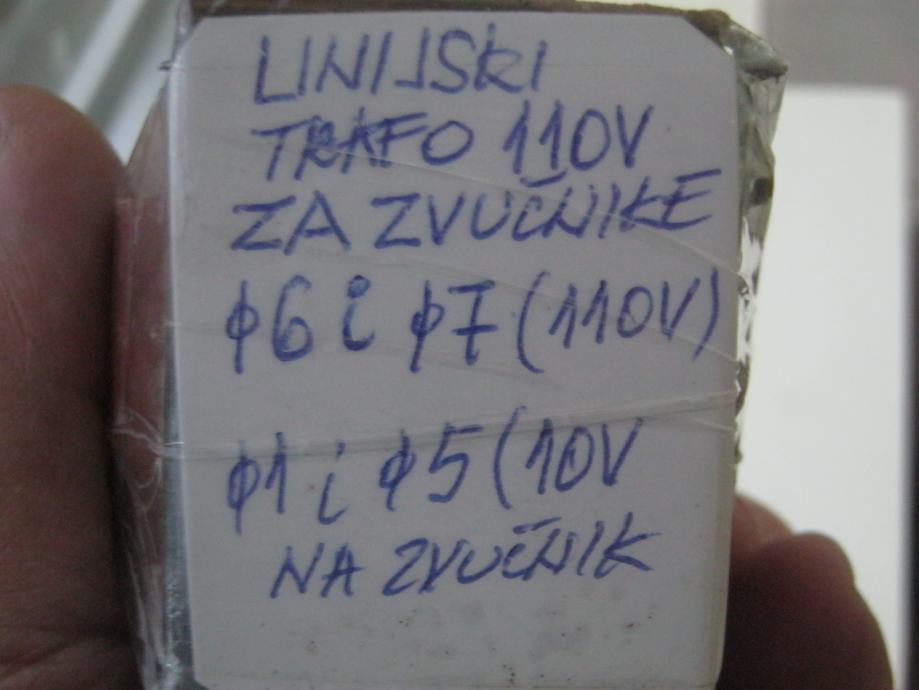 LINIJSKI
TRAFO 110V
ZA ZVUČNIKE
φ6 i φ7 (110V)
φ1 i φ5 (10V
NA ZVUČNIK